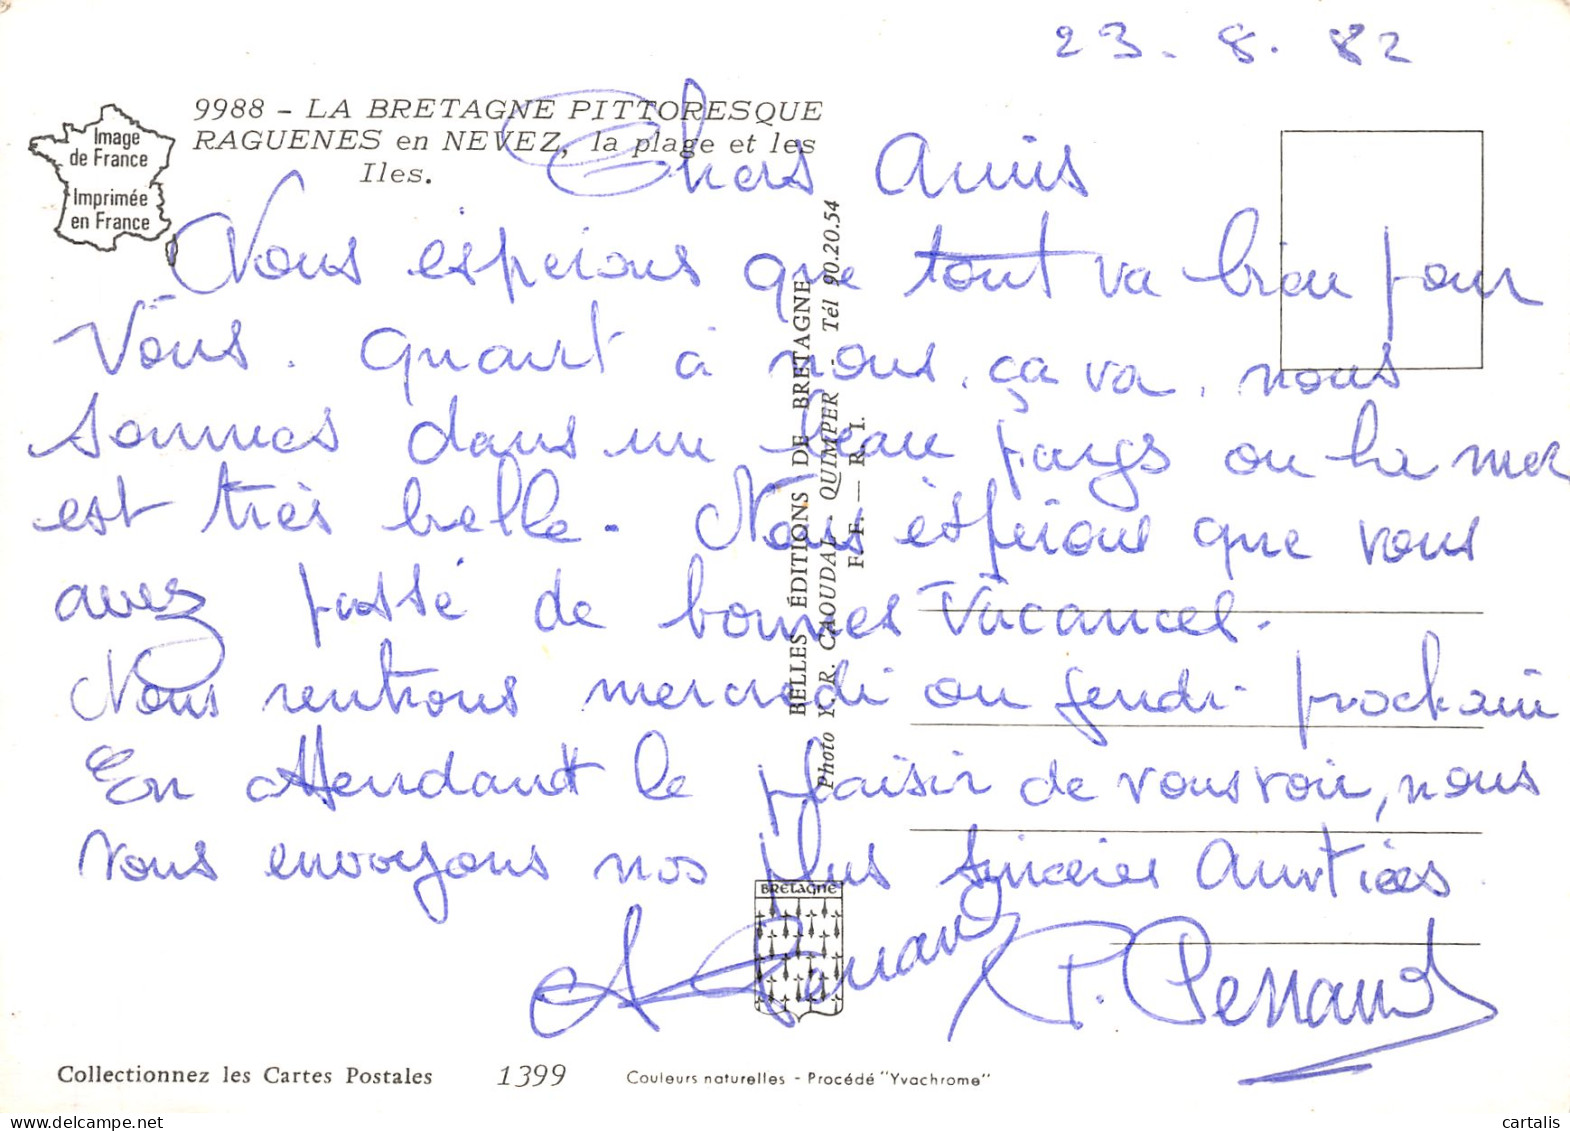 23.8.82
9988 - LA BRETAGNE PITTORESQUE
RAGUENES en NEVEZ, la plage et les
Iles.
Image
de France
Imprimée
en France
Chers Amis
Nous éspérons que tout va bien pour
Vous. Quant à nous, ça va, nous
sommes dans un beau pays ou la mer
est très belle. Nous éspérons que vous
avez passé de bonnes Vacances.
Nous rentrons mercredi ou jeudi prochain
En attendant le plaisir de vous voir, nous
vous envoyons nos plus sincères Amitiées
A
P.
BELLES ÉDITIONS DE BRETAGNE
Photo Y. R. CAOUDAL - QUIMPER - Tél 90.20.54
F. F. — R. I.
BRETAGNE
Collectionnez les Cartes Postales
1399
Couleurs naturelles - Procédé "Yvachrome"
cartalis
delcampe.net